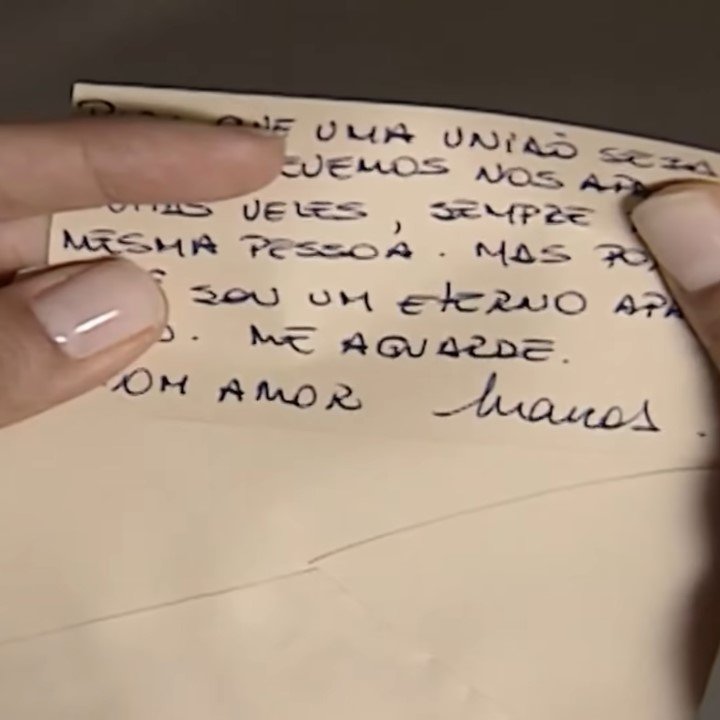 QUE UMA UNIÃO SEJA
DEVEMOS NOS
VEZES, SEMPRE
MESMA PESSOA. MAS
SOU UM ETERNO
. ME AGUARDE.
COM AMOR Marcos.